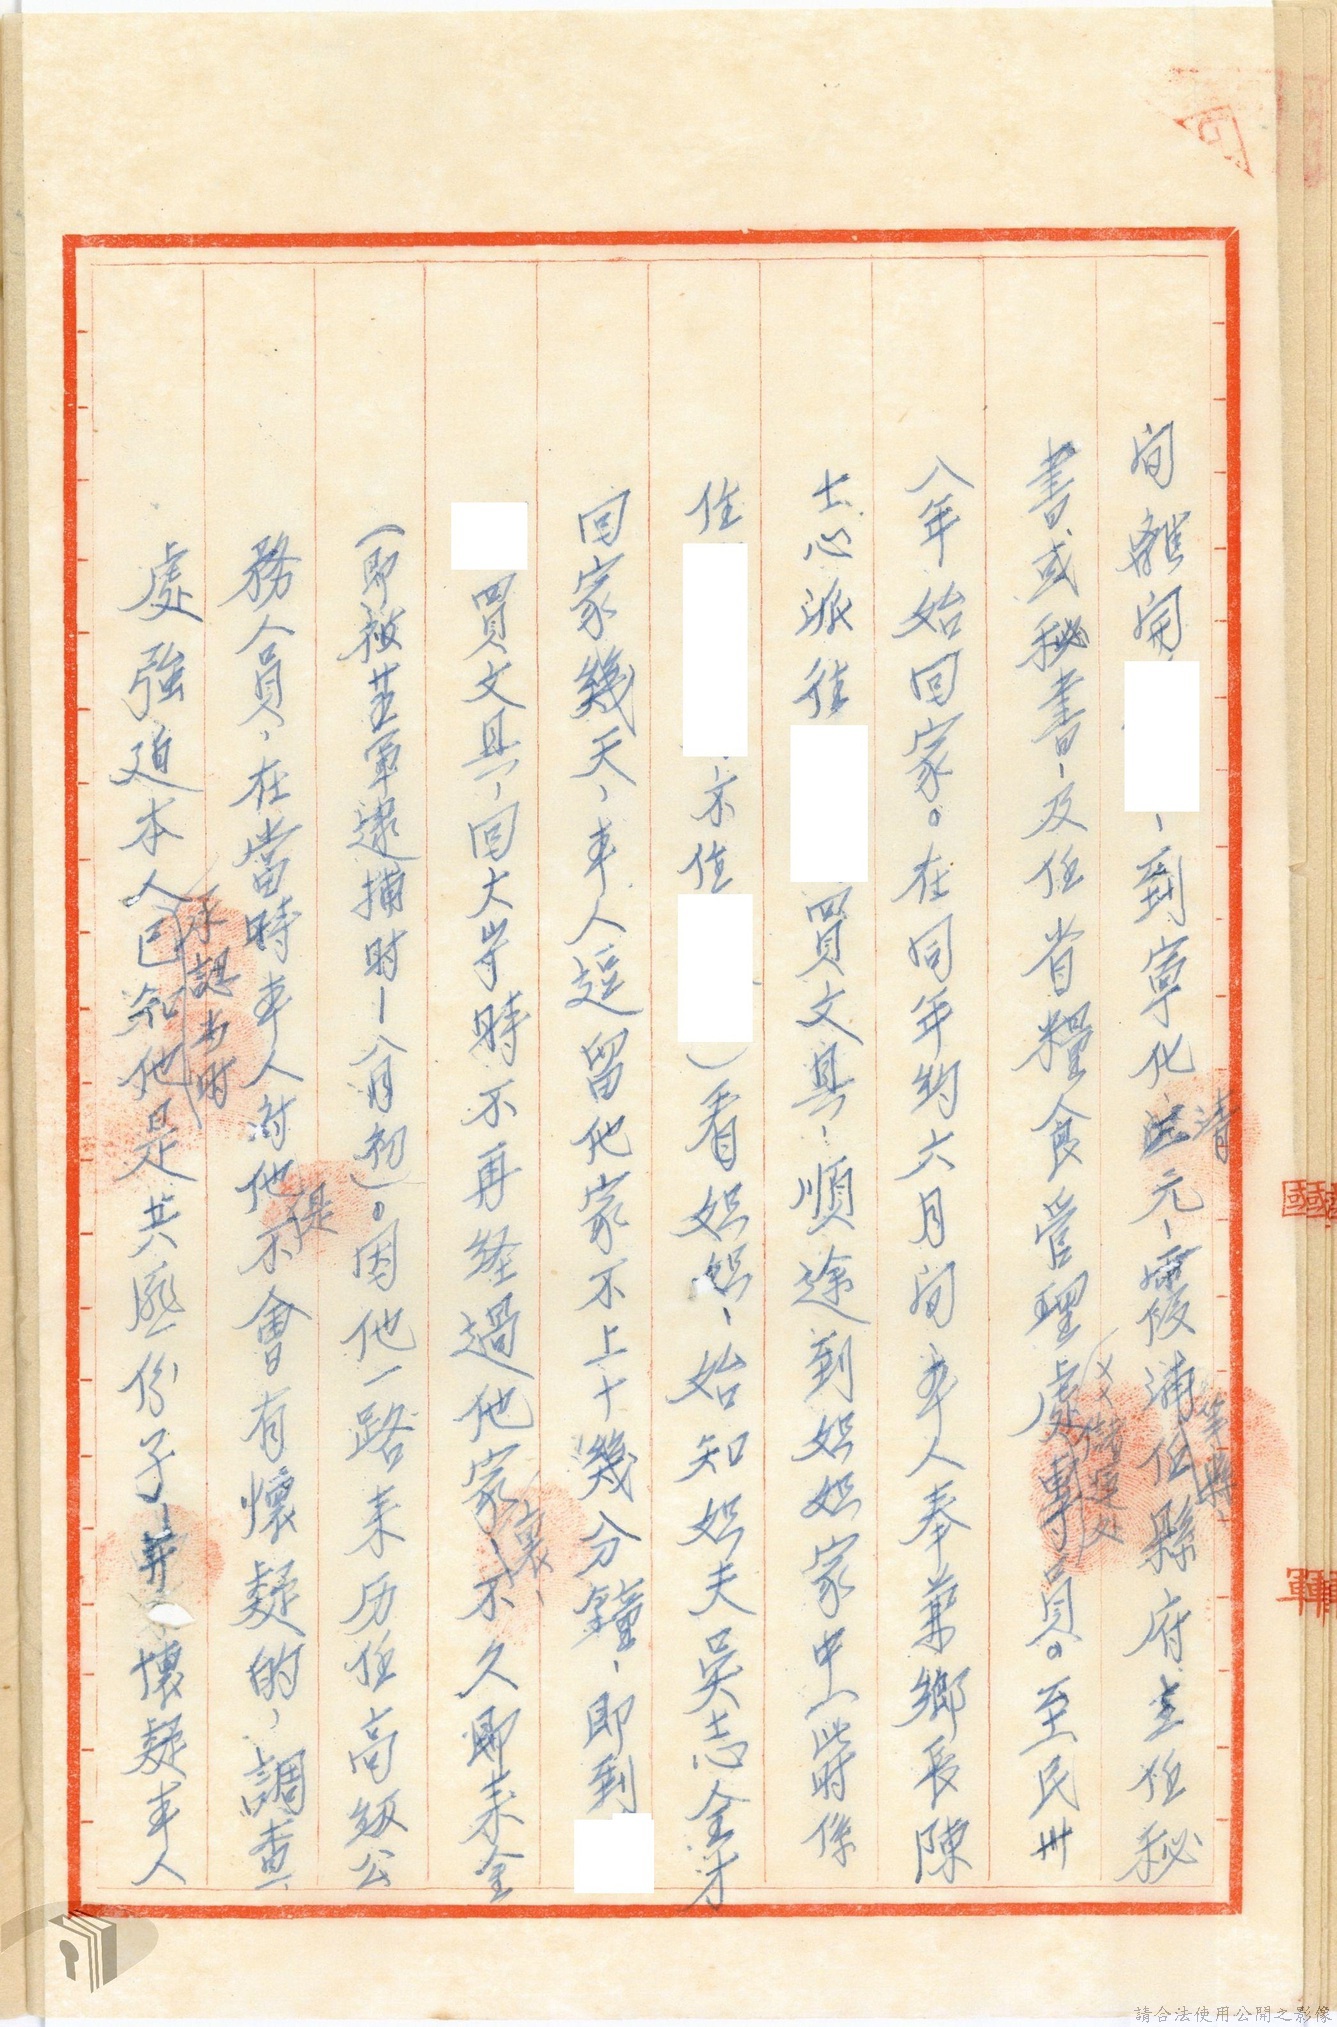 間離開、到寧化清流元、霞浦等縣任縣府主任秘
書或秘書、及任省糧食管理處儲運處專員。至民卅
八年始回家。在同年約六月間本人奉兼鄉長陳
士心派往買文具、順途到姐姐家中(此時係
住、不住)看姐姐、始知姐夫吳志全才
回家幾天、本人逗留他家不上十幾分鐘、即到
買文具、回大岞時不再経過他家裏、不久即来金
(即被并軍逮捕时—八月初)。因他一路来历任高級公
務人員、在當時本人对他是不會有懷疑的、調查
處強迫本人承認当时已知他是共匪份子、並懷疑本人
請合法使用公開之影像